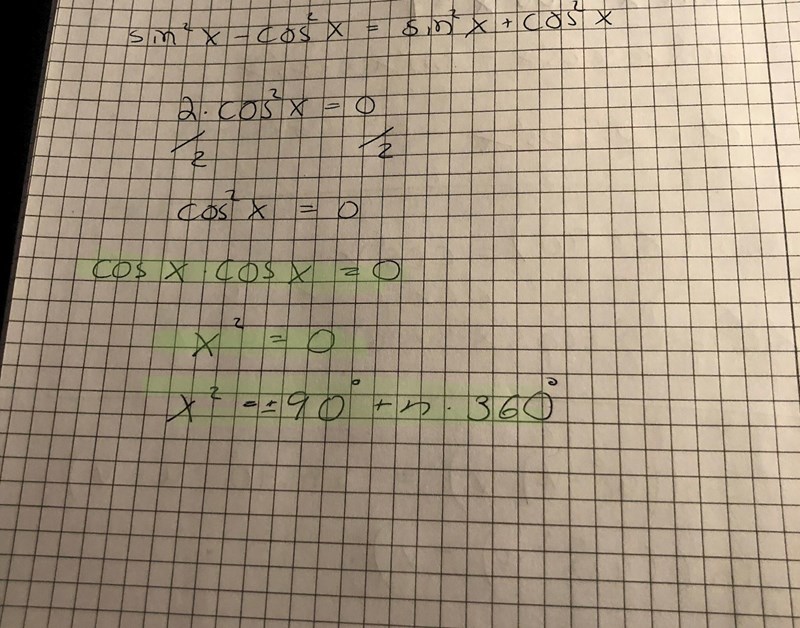 sin² x - cos² x = sin² x + cos² x
2 · cos² x = 0
/2 /2
cos² x = 0
cos x · cos x = 0
x² = 0
x² = ±90° + n · 360°